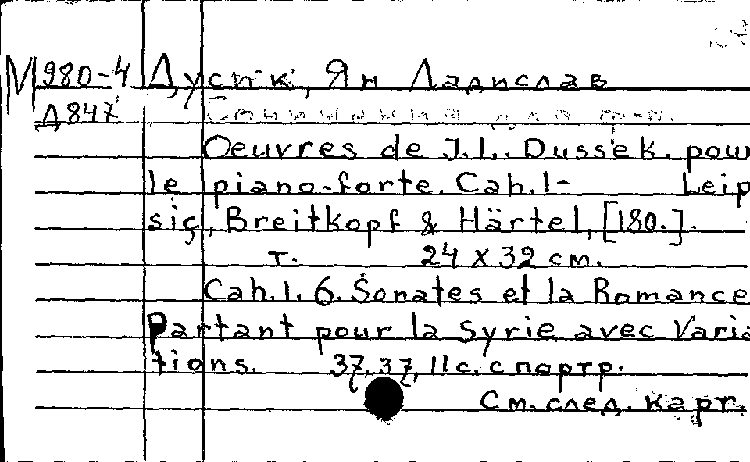 М 980-4 Дусик, Ян Ладислав
Д847 Сочинения для ф-п.
Oeuvres de J.L. Dussek. pour
le piano-forte. Cah.1- Leip
sig, Breitkopf & Härtel, [180.].
т. 24 x 32 см.
Cah.1. 6. Sonates et la Romance
Partant pour la Syrie avec Varia
tions. 37, 37, 11 с. с портр.
См. след. карт.